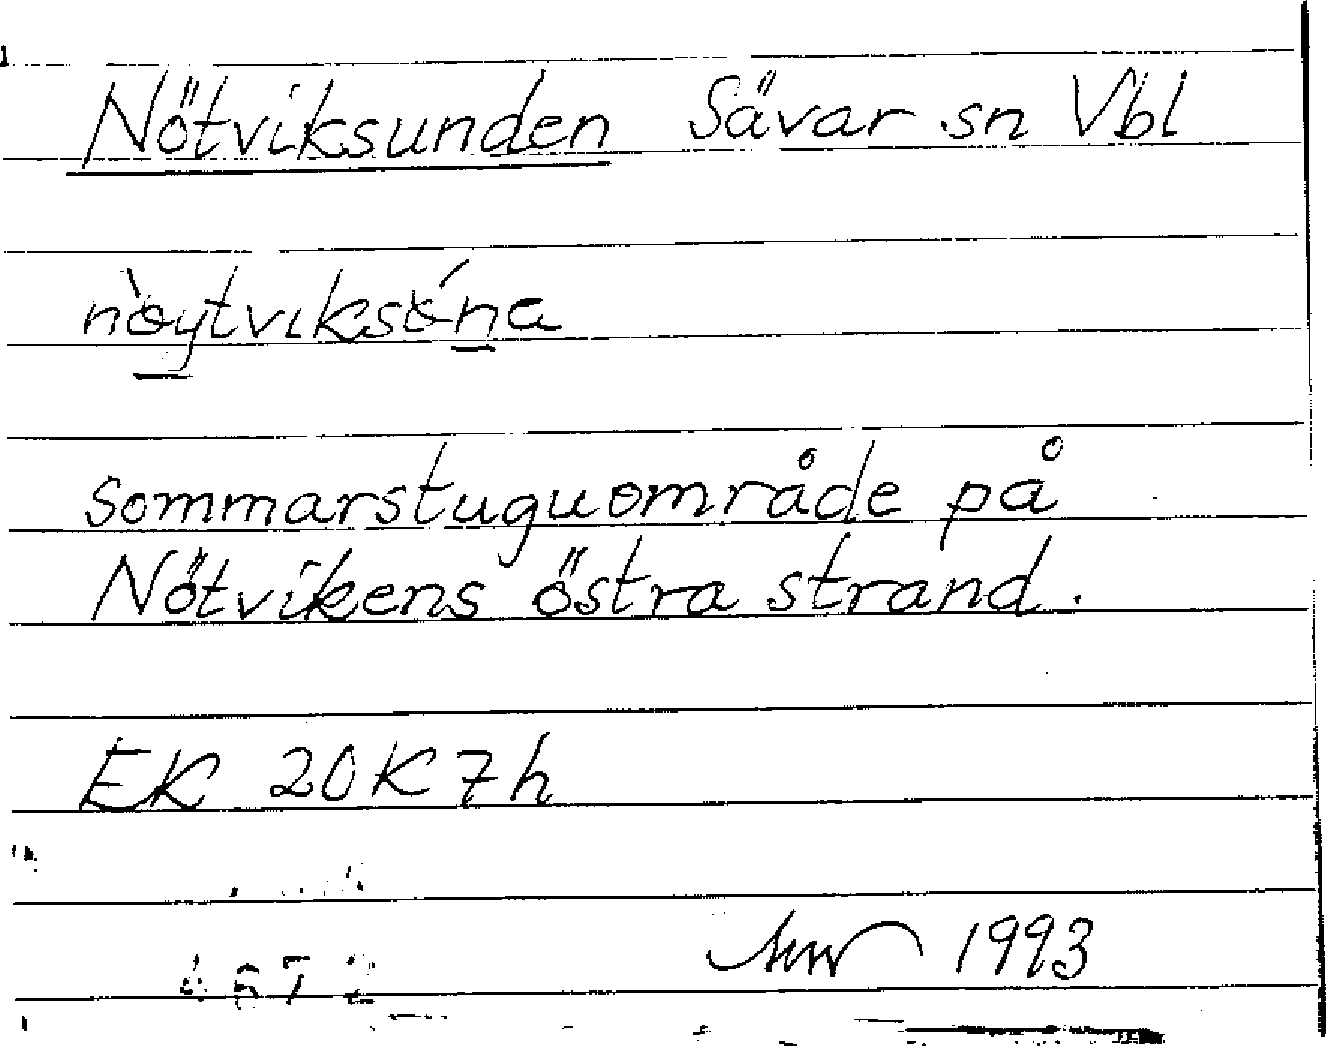 Nötviksunden Sävar sn Vbl
nòytvıksóna
sommarstuguområde på
Nötvikens östra strand.
EK 20K7h
1993